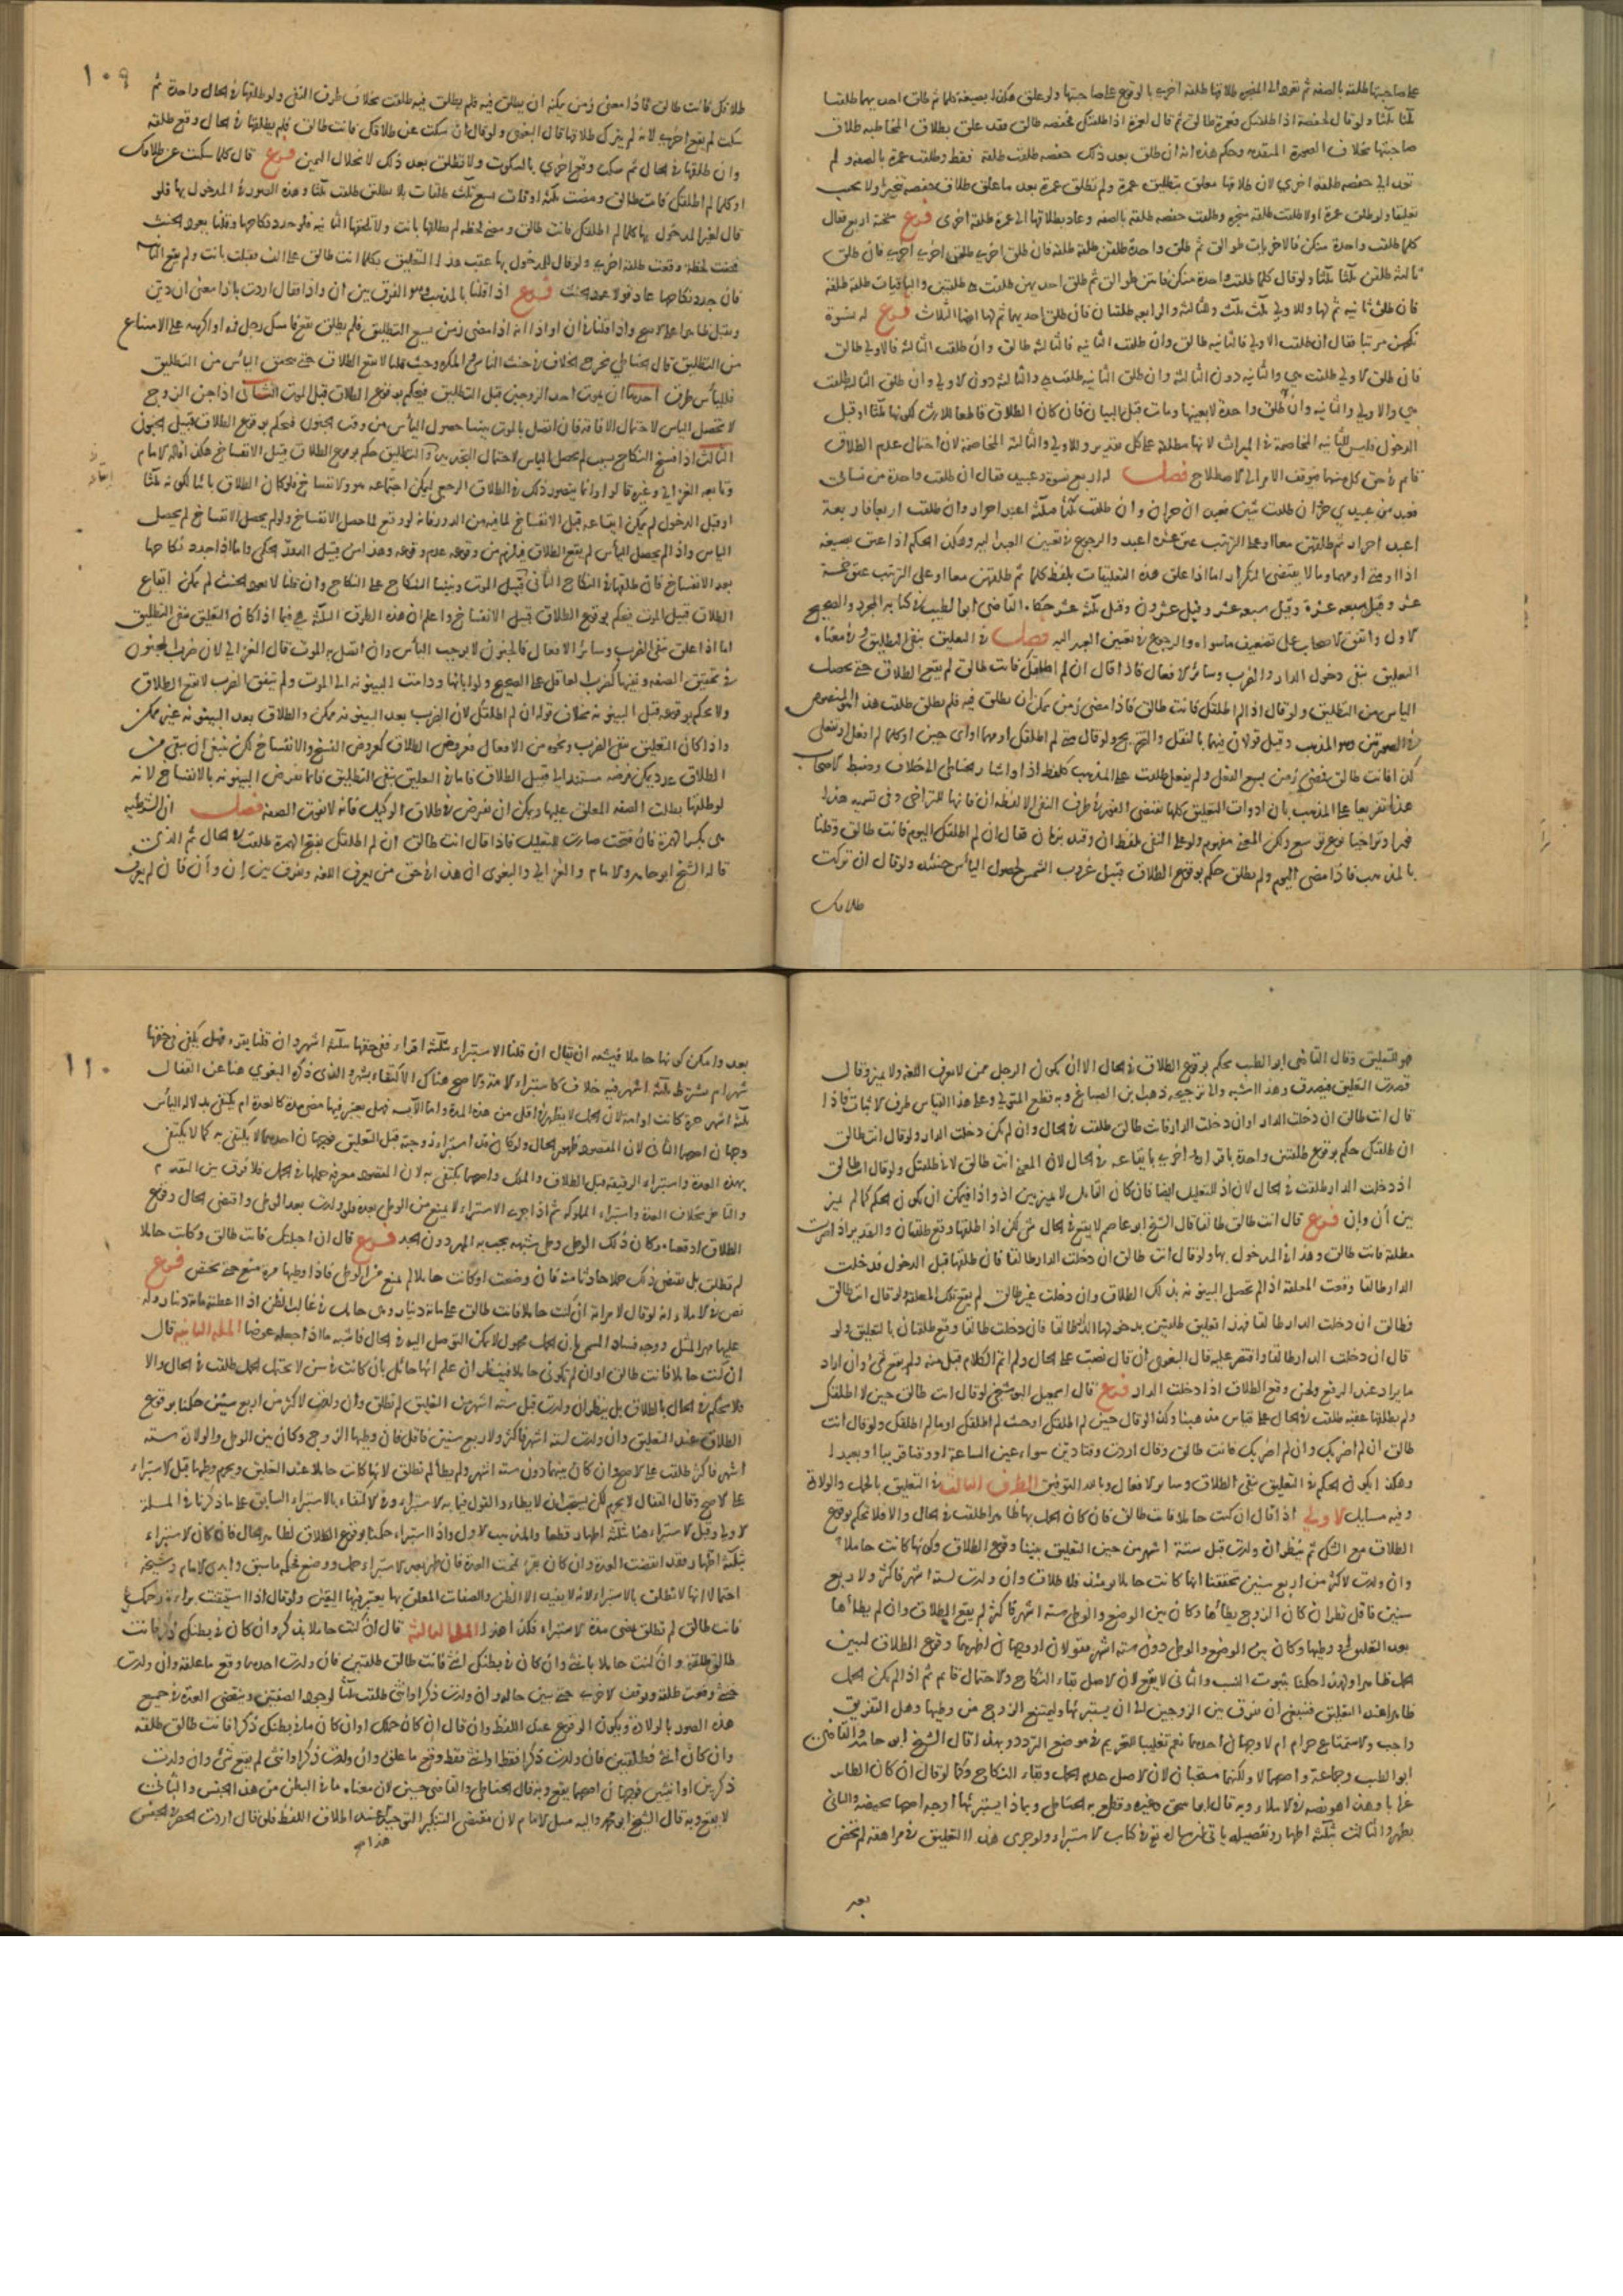 على صاحبتها طلقة بالصفة ثم تعود الى المنجز طلاقها طلقة اخرى بالوقوع على صاحبتها ولو علق هكذا بصيغة كلما ثم طلق احديهما طلقتا
ثلثا ثلثا ولو قال لحفصة اذا طلقتك فعمرة طالق ثم قال لعمرة اذا طلقتك فحفصة طالق فقد علق بطلاق المخاطبة طلاق
صاحبتها بخلاف الصورة المتقدمة وحكم هذه انه ان طلق بعد ذلك حفصة طلقت طلقة فقط وطلقت عمرة بالصفة ولم
تعد الى حفصة طلقة اخرى لان طلاقها معلق بتطليق عمرة ولم تطلق عمرة بعد ما علق طلاق حفصة تنجيزا ولا بحب
تعليقا ولو طلق عمرة اولا طلقت طلقة منجزة وطلقت حفصة طلقة بالصفة وعاد بطلاقها الى عمرة طلقة اخرى فرع تحته اربع فقال
كلما طلقت واحدة منكن فالاخريات طوالق ثم طلق واحدة طلقن طلقة طلقة فان طلق اخرى طلقن اخرى اخرى فان طلق
ثالثة طلقن ثلثا ثلثا ولو قال كلما طلقت واحدة منكن فانتن طوالق ثم طلق احديهن طلقت هي طلقتين والباقيات طلقة طلقة
فان طلق ثانية تم لها وللاولى ثلث ثلث وللثالثة والرابعة طلقتان فان طلق احديهما تم لهما ايضا الثلاث فرع له نسوة
نكحهن مرتبا فقال ان طلقت الاولى فالثانية طالق وان طلقت الثانية فالثالثة طالق وان طلقت الثالثة فالاولى طالق
فان طلق الاولى طلقت هي والثانية دون الثالثة وان طلق الثانية طلقت هي والثالثة دون الاولى وان طلق الثالثة طلقت
هي والاولى والثانية وان طلق واحدة لا بعينها ومات قبل البيان فان كان الطلاق قاطعا للارث لكونها ثلثا او قبل
الدخول فليس للثانية المخاصمة في الميراث لانها مطلقة على كل تقدير وللاولى والثالثة المخاصمة لان احتمال عدم الطلاق
قائم في حق كل منهما فيوقف الامر الى الاصطلاح فصل له اربع نسوة وعبيد فقال ان طلقت واحدة من نسائي
فعبد من عبيدي حر وان طلقت ثنتين فعبدان حران وان طلقت ثلثا فثلثة اعبد احرار وان طلقت اربعا فاربعة
اعبد احرار ثم طلقهن معا او على الترتيب عتق عشرة اعبد والرجوع في تعيين العبيد اليه وهكذا الحكم اذا علق بصيغة
اذا او متى او مهما وما لا يقتضي التكرار اما اذا علق هذه التعليقات بلفظ كلما ثم طلقهن معا او على الترتيب عتق خمسة
عشر وقيل سبعة عشرة وقيل عشرون وقيل ثلثة عشر حكاه القاضي ابو الطيب في كتابه المجرد والصحيح
الاول واتفق الاصحاب على تضعيف ما سواه والرجوع في تعيين العبيد اليه فصل في التعليق بنفي التطليق وفي معناه
التعليق بنفي دخول الدار والضرب وسائر الافعال فاذا قال ان لم اطلقك فانت طالق لم يقع الطلاق حتى يحصل
الياس من التطليق ولو قال اذا لم اطلقك فانت طالق فاذا مضى زمن يمكن ان يطلق فيه فلم يطلق طلقت هذا هو المنصوص
في الصورتين وهو المذهب وقيل قولان فيهما بالنقل والتخريج ولو قال متى لم اطلقك او مهما او اي حين او كلما لم افعل او تفعلي
كذا فانت طالق فمضى زمن يسع الفعل ولم يفعل طلقت على المذهب كلفظ اذا واشار الحناطي الى خلاف وضبط الاصحاب
هذا تفريعا على المذهب بان ادوات التعليق كلها تقتضي الفور في طرف النفي الا لفظة ان فانها للتراخي وفي تسمية هذا
فورا وتراخيا نوع توسع ولكن المعنى مفهوم ولو على النفي بلفظ ان وقيد بزمان فقال ان لم اطلقك اليوم فانت طالق وقلنا
بالمذهب فاذا مضى اليوم ولم يطلق حكم بوقوع الطلاق قبيل غروب الشمس لحصول الياس حينئذ ولو قال ان تركت
طلاقك
١٠٩
طلاقك فانت طالق فاذا مضى زمن يمكنه ان يطلق فيه فلم يطلق طلقت بخلاف طرف النفي ولو طلقها في الحال واحدة ثم
سكت لم يقع اخرى لانه لم يترك طلاقها قال البغوي ولو قال ان سكت عن طلاقك فانت طالق فلم يطلقها في الحال وقع طلقة
وان طلقها في الحال ثم سكت وقع اخرى بالسكوت ولا تطلق بعد ذلك لانحلال اليمين فرع قال كلما سكت عن طلاقك
او كلما لم اطلقك فانت طالق ومضت ثلثة اوقات تسع ثلث طلقات بلا تطليق طلقت ثلثا وهذه الصورة في المدخول بها فلو
قال لغير المدخول بها كلما لم اطلقك فانت طالق ومضى لحظة لم يطلقها بانت ولا تلحقها الثانية فلو جدد نكاحها وقلنا بعود الحنث
فمضت لحظة وقعت طلقة اخرى ولو قال للمدخول بها عقب هذا التعليق بكلما انت طالق على الف فقبلت بانت ولم يقع الثانية
فان جدد نكاحها عاد قولا عود الحنث فرع اذا قلنا بالمذهب وهو الفرق بين ان واذا فقال اردت باذا معنى ان دين
ويقبل ظاهرا على الاصح واذا قلنا في ان او اذا انه اذا مضى زمن يسع التطليق فلم يطلق تقع فامسك رجل فاه او اكرهه على الامتناع
من التطليق قال الحناطي يخرج الخلاف في حنث الناسي والمكره وحيث قلنا لا يقع الطلاق حتى يتحقق الياس من التطليق
فللياس طرق احدها ان يموت احد الزوجين قبل التطليق فيحكم بوقوع الطلاق قبيل الموت الثاني اذا جن الزوج
لا يحصل الياس لاحتمال الافاقة فان اتصل بالموت تبينا حصول الياس من وقت الجنون فيحكم بوقوع الطلاق قبيل الجنون
الثالث اذا فسخ النكاح بسبب لم يحصل الياس لاحتمال التجديد والتطليق حكم بوقوع الطلاق قبيل الانفساخ هكذا قاله الامام
وتابعه الغزالي وغيره قالوا وانما يتصور ذلك في الطلاق الرجعي ليمكن اجتماعه هو والانفساخ فلو كان الطلاق بائنا لكونه ثلثا
او قبل الدخول لم يمكن ايقاعه قبل الانفساخ لما فيه من الدور فانه لو وقع لما حصل الانفساخ ولو لم يحصل الانفساخ لم يحصل
الياس واذا لم يحصل الياس لم يقع الطلاق فيلزم من وقوعه عدم وقوعه وهذا من قبيل الدور الحكمي واما اذا جدد نكاحها
بعد الانفساخ فان طلقها في النكاح الثاني قبيل الموت وبنينا النكاح على النكاح وان قلنا لا يعود الحنث لم يمكن ايقاع
الطلاق قبيل الموت فيحكم بوقوع الطلاق قبيل الانفساخ واعلم ان هذه الطرق الثلثة هي فيما اذا كان التعليق بنفي التطليق
اما اذا علق بنفي الضرب وسائر الافعال فالجنون لا يوجب الياس وان اتصل به الموت قال الغزالي لان ضرب المجنون
في تحقيق الصفة ونفيها كضرب العاقل على الصحيح ولو ابانها ودامت البينونة الى الموت ولم يتفق الضرب لا يقع الطلاق
ولا يحكم بوقوعه قبل البينونة بخلاف قوله ان لم اطلقك لان الضرب بعد البينونة ممكن والطلاق بعد البينونة غير ممكن
واذا كان التعليق بنفي الضرب ونحوه من الافعال فعروض الطلاق كعروض الفسخ والانفساخ لكن ينبغي ان يبقى من
الطلاق عدد يمكن فرضه مستندا الى قبيل الطلاق فاما في التعليق بنفي التطليق فانما تفرض البينونة بالانفساخ لانه
لو طلقها بطلت الصفة المعلق عليها ويمكن ان تفرض في طلاق الوكيل فانه لا تفوت الصفة فصل ان الشرطية
هي بكسر الهمزة فان فتحت صارت للتعليل فاذا قال انت طالق ان لم اطلقك بفتح الهمزة طلقت في الحال ثم الذي
قاله الشيخ ابو حامد والامام والغزالي والبغوي ان هذا في حق من يعرف اللغة ويفرق بين ان وأن فان لم يعرف
هو للتعليق وقال القاضي ابو الطيب يحكم بوقوع الطلاق في الحال الا ان يكون الرجل ممن لا يعرف اللغة ولا يميز وقال
قصدت التعليق فيصدق وهذا اشبه والى ترجيحه ذهب ابن الصباغ وبه قطع المتولي وعلى هذا القياس طرف الاثبات فاذا
قال انت طالق ان دخلت الدار او ان دخلت الدار فانت طالق طلقت في الحال وان لم تكن دخلت الدار ولو قال انت طالق
ان طلقتك حكم بوقوع طلقتين واحدة باقراره واخرى بايقاعه في الحال لان المعنى انت طالق لاني طلقتك ولو قال انت طالق
اذ دخلت الدار طلقت في الحال لان اذ للتعليل ايضا فان كان القائل لا يميز بين اذ واذا فيمكن ان يكون الحكم كما لم يميز
بين أن وإن فرع قال انت طالق طالقا قال الشيخ ابو عاصم لا يقع في الحال شيء لكن اذا طلقها وقع طلقتان والتقدير اذا صرت
مطلقة فانت طالق وهذا في المدخول بها ولو قال انت طالق ان دخلت الدار طالقا فان طلقها قبل الدخول فدخلت
الدار طالقا وقعت المعلقة اذا لم تحصل البينونة بذلك الطلاق وان دخلت غير طالق لم يقع تلك المعلقة ولو قال انت طالق
فطالق ان دخلت الدار طالقا فهذا تعليق طلقتين بدخولها الدار طالقا فان دخلت طالقا وقع طلقتان بالتعليق ولو
قال ان دخلت الدار طالقا واقتصر عليه قال البغوي ان قال نصبت على الحال ولم اتم الكلام قبل منه ولم يقع شيء وان اراد
ما يراد عند الرفع ولحن وقع الطلاق اذا دخلت الدار فرع قال اسمعيل البوشنجي لو قال انت طالق حين لا اطلقك
ولم يطلقها عقبه طلقت في الحال على قياس مذهبنا وكذا لو قال حين لم اطلقك او حيث لم اطلقك او ما لم اطلقك ولو قال انت
طالق ان لم اضربك وان لم اضربك فانت طالق وقال اردت وقتا دين سواء عين الساعة او وقتا قريبا او بعيدا
وهكذا يكون الحكم في التعليق بنفي الطلاق وسائر الافعال وبالله التوفيق الطرف الثالث في التعليق بالحمل والولادة
وفيه مسائل الاولى اذا قال ان كنت حاملا فانت طالق فان كان الحمل بها ظاهرا طلقت في الحال والا فلا نحكم بوقوع
الطلاق مع الشك ثم ينظر ان ولدت قبل ستة اشهر من حين التعليق تبينا وقوع الطلاق وكونها كانت حاملا
وان ولدت لاكثر من اربع سنين تحققنا انها كانت حائلا يومئذ فلا طلاق وان ولدت لستة اشهر فاكثر ولاربع
سنين فاقل نظر ان كان الزوج يطأها وكان بين الوضع والوطئ ستة اشهر فاكثر لم يقع الطلاق وان لم يطأها
بعد التعليق او وطئها وكان بين الوضع والوطئ دون ستة اشهر فقولان او وجهان اظهرهما وقوع الطلاق لتبين
الحمل ظاهرا ولهذا حكمنا بثبوت النسب والثاني لا يقع لان الاصل بقاء النكاح والاحتمال قائم ثم اذا لم يكن الحمل
ظاهرا عند التعليق فينبغي ان نفرق بين الزوجين الى ان يستبرئها وليمتنع الزوج من وطئها وهل التفريق
واجب والاستمتاع حرام ام لا وجهان احدهما نعم تغليبا للتحريم في موضع التردد وبهذا قال الشيخ ابو حامد والقاضي
ابو الطيب وجماعة واصحهما لا ولكنهما مستحبان لان الاصل عدم الحمل وبقاء النكاح وكما لو قال ان كان الطائر
غرابا وهذا هو نصه في الاملاء وبه قال ابو اسحق وغيره وقطع به الحناطي وبماذا يستبرئها اوجه اصحها بحيضة والثاني
بطهر والثالث بثلثة اطهار وتفصيله ياتي ان شاء الله تع في كتاب الاستبراء ولو جرى هذا التعليق في مراهقة لم تحض
بعد
١١٠
بعد وامكن كونها حاملا فيشبه ان يقال ان قلنا الاستبراء بثلثة اقراء ففي حقها بثلثة اشهر وان قلنا بقرء فهل يكفي في حقها
شهر ام يشترط ثلثة اشهر فيه خلاف كاستبراء الامة والاصح هناك الاكتفاء بشهر والذي ذكره البغوي هنا عن القفال
ثلثة اشهر حرة كانت او امة لان الحمل لا يظهر في اقل من هذه المدة واما الآيسة فهل يعتبر فيها مضي مدة كالعدة ام يكتفى بدلالة الياس
وجهان اصحهما الثاني لان المقصود ظهور الحال ولو كان قد استبرأ زوجته قبل التعليق فوجهان احدهما لا يكتفى به كما لا يكتفى
بهذه العدة واستبراء الرقيقة قبل الطلاق والملك واصحهما يكتفى به لان المقصود معرفة حملها في الحال فلا فرق بين التقدم
والتاخر بخلاف العدة واستبراء المملوكة ثم اذا جرى الاستبراء لا يمنع من الوطئ بعده فلو ولدت بعد الوطئ واقتضى الحال وقوع
الطلاق اوقعناه وكان ذلك الوطئ وطئ شبهة يجب به المهر دون الحد فرع قال ان احبلتك فانت طالق وكانت حاملا
لم تطلق بل يقتضي ذلك حملا حادثا منه فان وضعت او كانت حائلا لم يمنع من الوطئ فاذا وطئها مرة منع حتى تحيض فرع
نص في الاملاء انه لو قال لامراته ان كنت حاملا فانت طالق على مائة دينار وهي حامل في غالب الظن اذا اعطته مائة دينار وله
عليها مهر المثل ووجه فساد المسمى بان الحمل مجهول لا يمكن التوصل اليه في الحال فاشبه ما اذا جعله عوضا المسلة الثانية قال
ان كنت حائلا فانت طالق او ان لم تكوني حاملا فينظر ان علم انها حائل بان كانت في سن لا تحتمل الحمل طلقت في الحال والا
فلا نحكم في الحال بالطلاق بل ينظر ان ولدت قبل ستة اشهر من التعليق لم تطلق وان ولدت لاكثر من اربع سنين حكمنا بوقوع
الطلاق عند التعليق وان ولدت لستة اشهر فاكثر ولاربع سنين فاقل فان وطئها الزوج وكان بين الوطئ والولادة ستة
اشهر فاكثر طلقت على الاصح وان كان بينهما دون ستة اشهر ولم يطأ لم تطلق لانها كانت حاملا عند التعليق ويحرم وطئها قبل الاستبراء
على الاصح وقال القفال لا يحرم لكن يستحب ان لا يطأها والقول فيما به الاستبراء وفي الاكتفاء بالاستبراء السابق على ما ذكرنا في المسلة
الاولى وقيل الاستبراء هنا بثلثة اطهار قطعا والمذهب الاول واذا استبراء حكمنا بوقوع الطلاق لظاهر الحال فان كان الاستبراء
بثلثة اطهار فقد انقضت العدة وان كان بقرء تمت العدة فان ظهر بعد الاستبراء حمل ووضع فحكمه ما سبق وابدى الامام وشيخه
احتمالا انها لا تطلق بالاستبراء لانه لا يفيد الا الظن والصفات المعلق بها يعتبر فيها اليقين ولو قال اذا استيقنت براءة رحمك
فانت طالق لم تطلق بمضي مدة الاستبراء فكذا هذا المسالة الثالثة قال ان كنت حاملا بذكر او ان كان في بطنك ذكر فانت
طالق طلقة وان كنت حاملا بانثى او ان كان في بطنك انثى فانت طالق طلقتين فان ولدت احدهما وقع ما علقه وان ولدت
خنثى وقعت طلقة ووقفت الاخرى حتى يتبين حاله وان ولدت ذكرا وانثى طلقت ثلثا لوجود الصفتين وينقضي العدة في جميع
هذه الصور بالولادة ويكون الوقوع عند اللفظ وان قال ان كان حملك او ان كان ما في بطنك ذكرا فانت طالق طلقة
وان كان انثى فطلقتين فان ولدت ذكرا فقط او انثى فقط وقع ما علق وان ولدت ذكرا وانثى لم يقع شيء وان ولدت
ذكرين او انثيين فوجهان اصحهما يقع وبه قال الحناطي والقاضي حسين لان معناه ما في البطن من هذا الجنس والثاني
لا يقع وبه قال الشيخ ابو محمد واليه ميل الامام لان مقتضى التنكير التوحيد عند اطلاق اللفظ فلو قال اردت الحصر في الجنس